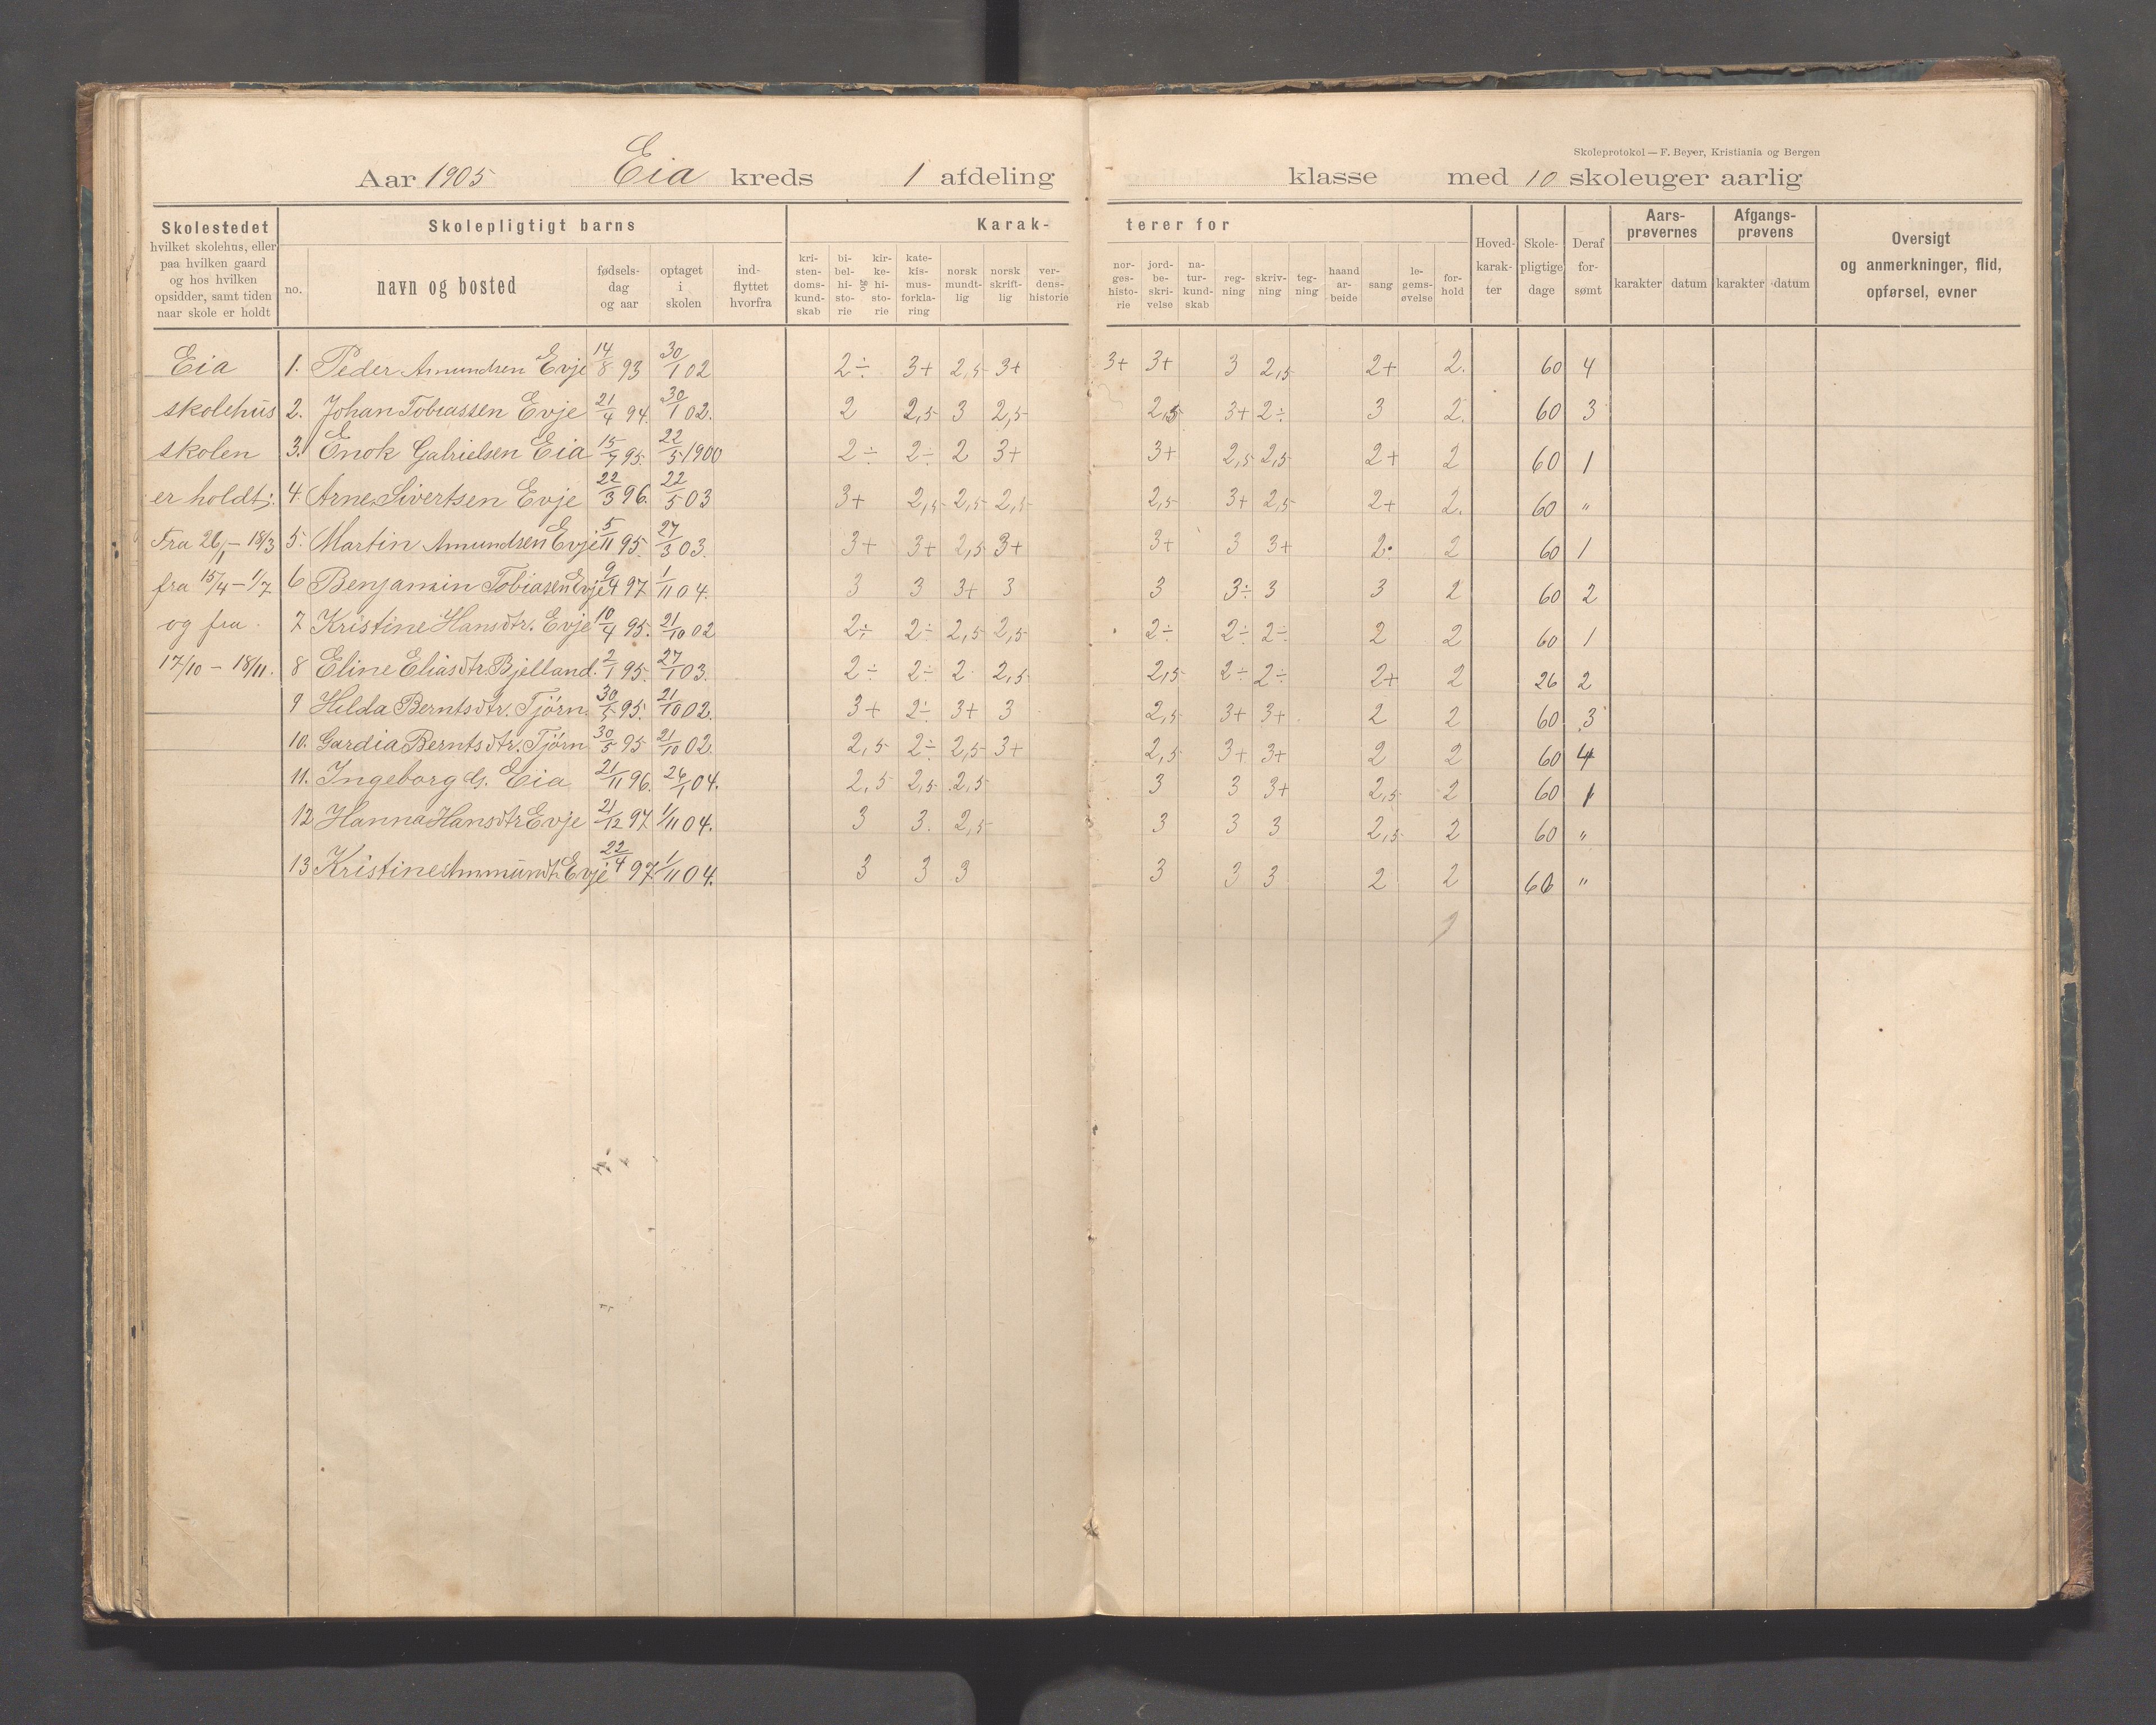 Skoleprotokol — F. Beyer, Kristiania og Bergen
Aar 1905 Eia kreds 1 afdeling klasse med 10 skoleuger aarlig
Skolestedet
hvilket skolehus, eller
paa hvilken gaard
og hos hvilken
opsidder, samt tiden
naar skole er holdt
Skolepligtigt barns
no. navn og bosted
fødsels-
dag
og aar
optaget
i
skolen
ind-
flyttet
hvorfra
Karak-
terer for
kri-
sten-
doms-
kund-
skab
bi-
bel-
hi-
sto-
rie
og
kir-
ke-
hi-
sto-
rie
kate-
kis-
mus-
forkla-
ring
norsk
mundt-
lig
norsk
skrift-
lig
ver-
dens-
historie
nor-
ges-
histo-
rie
jord-
be-
skri-
velse
na-
tur-
kund-
skab
reg-
ning
skriv-
ning
teg-
ning
haand
ar-
beide
sang
le-
gems-
øvelse
for-
hold
Hoved-
karak-
ter
Skole-
pligtige
dage
Deraf
for-
sømt
Aars-
prøvernes
karakter datum
Afgangs-
prøvens
karakter datum
Oversigt
og anmerkninger, flid,
opførsel, evner
Eia 1. Peder Amundsen Evje 14/8 93 30/1 02 2÷ 3+ 2,5 3+ 3+ 3+ 3 2,5 2+ 2. 60 4
skolehus 2. Johan Tobiassen Evje 21/4 94. 30/1 02. 2 2,5 3 2,5 2,5 3+ 2÷ 3 2. 60 3
skolen 3. Enok Gabrielsen Eia 15/7 95. 22/5 1900 2÷ 2÷ 2 3+ 3+ 2,5 2,5 2+ 2 60 1
er holdt: 4. Arne Sivertsen Evje 22/3 96. 22/5 03 3+ 2,5 2,5 2,5 2,5 3+ 2,5 2+ 2. 60 "
Fra 26/1 – 18/3 5. Martin Amundsen Evje 5/11 95. 27/3 03. 3+ 3+ 2,5 3+ 3+ 3 3+ 2. 2 60 1
fra 15/4 – 1/7 6 Benjamin Tobiasen Evje 9/4 97 1/11 04. 3 3 3+ 3 3 3÷ 3 3 2 60 2
og fra 7 Kristine Hansdtr. Evje 10/4 95. 21/10 02 2÷ 2÷ 2,5 2,5 2÷ 2÷ 2÷ 2 2 60 1
17/10 – 18/11. 8 Eline Eliasdtr. Bjelland. 2/1 95. 27/1 03. 2÷ 2÷ 2 2,5 2,5 2÷ 2÷ 2+ 2 26 2
9 Hilda Berntsdtr. Tjørn. 30/5 95. 21/10 02. 3+ 2÷ 3+ 3 2,5 3+ 3+ 2 2 60 3
10. Gardia Berntsdtr. Tjørn 30/5 95 21/10 02. 2,5 2÷ 2,5 3+ 2,5 3+ 3+ 2 2 60 4
11. Ingeborg G. Eia 21/11 96. 26/1 04. 2,5 2,5 2,5 3 3 3+ 2,5 2 60 1
12 Hanna Hansdtr Evje 21/12 97 1/11 04. 3 3. 2,5 3 3 3 2,5 2 60 "
13 Kristine Ammundt. Evje 22/4 97. 1/11 04. 3 3 3 3 3 3 2 2 60 "